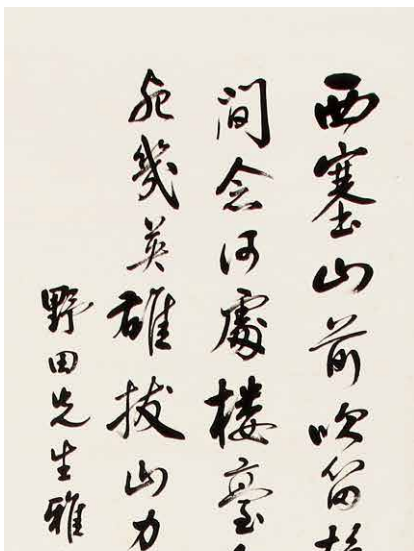 西塞山前吹笛
間念何處樓臺
幾英雄拔山力
野田先生雅